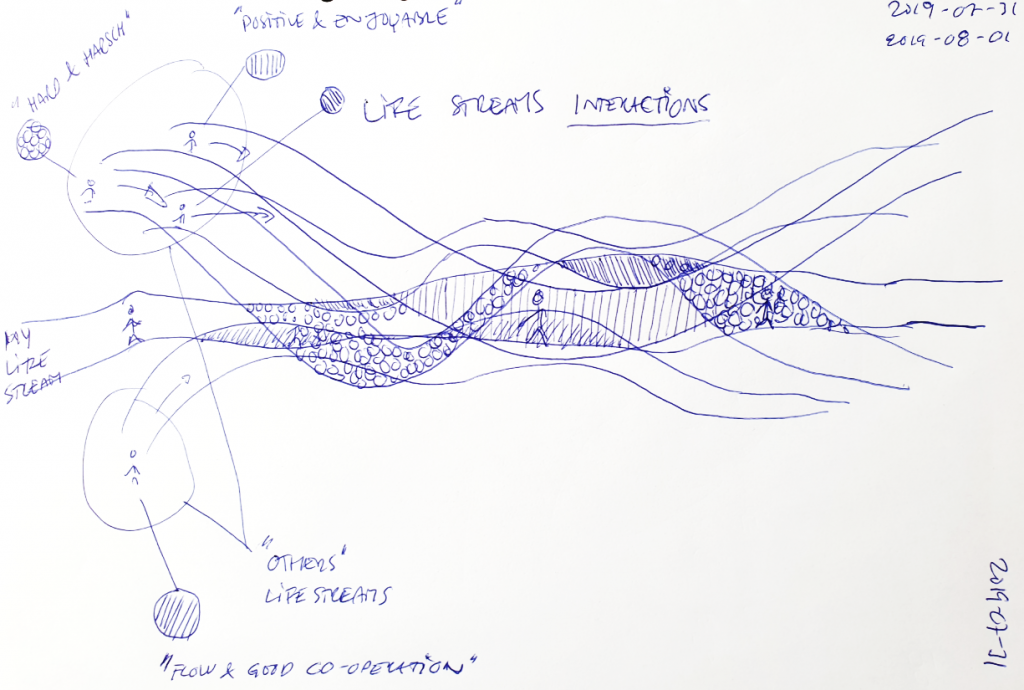 2019-07-31
2019-08-01
"POSITIVE & ENJOYABLE"
"HARD & HARSCH"
LIFE STREAMS INTERACTIONS
MY
LIFE
STREAM
"OTHERS"
LIFE STREAMS
"FLOW & GOOD CO-OPERATION"
2019-07-31